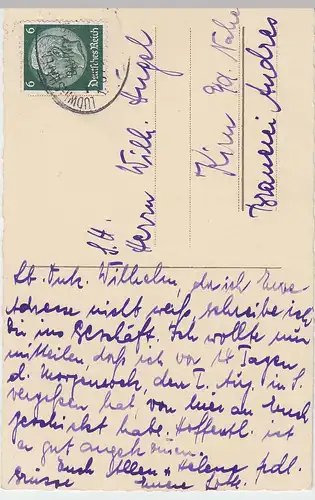 6 Deutsches Reich 6
LUDWIG
S.H.
Herrn Wilh. Hügel
Kirn a/d. Nahe
Brauerei Andres
Lb. Onk. Wilhelm, da ich Eure
Adresse nicht weiß, schreibe ich
Dir ins Geschäft. Ich wollte nur
mitteilen, daß ich vor 14 Tagen
d. Morgenrock, den T. Aug. in S.
vergessen hat, von hier an Euch
geschickt habe. Hoffentl. ist
er gut angekommen.
Euch Allen u. Helene hdl.
Grüsse Eure